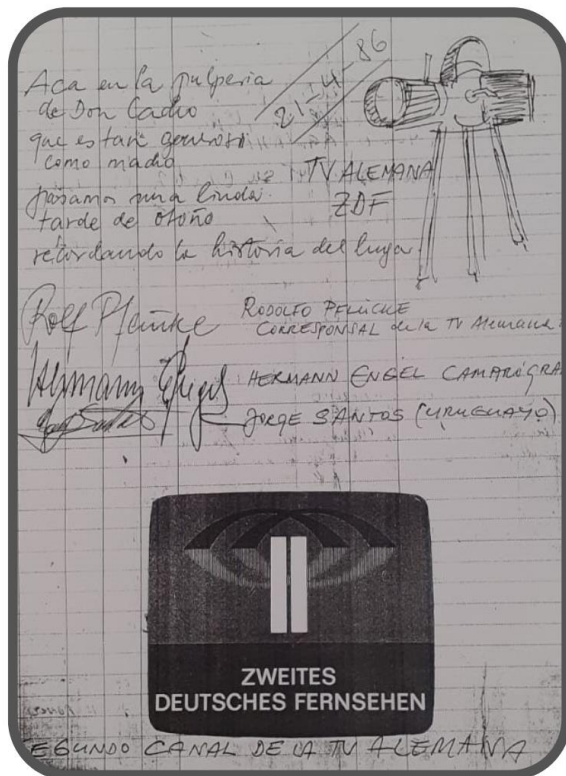 Aca en la pulperia
de Don Cacho
que es tan generoso
como nadie
pasamos una linda
tarde de otoño
recordando la historia del lugar
21-4-86
TV ALEMANA
ZDF
Rolf Pflücke
RODOLFO PFLÜCKE
CORRESPONSAL de la TV Alemana
Hermann Engel
HERMANN ENGEL CAMARÓGRA
JORGE SANTOS (URUGUAYO)
ZWEITES
DEUTSCHES FERNSEHEN
EGUNDO CANAL DE LA TV ALEMANA